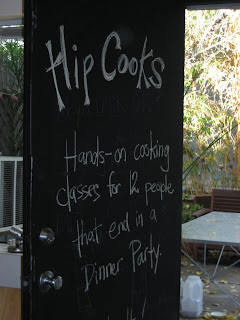 Hip Cooks
Hands-on cooking
classes for 12 people
that end in a
Dinner Party.